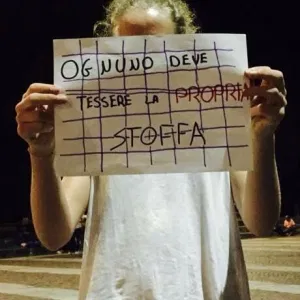 OGNUNO DEVE
TESSERE LA PROPRIA
STOFFA